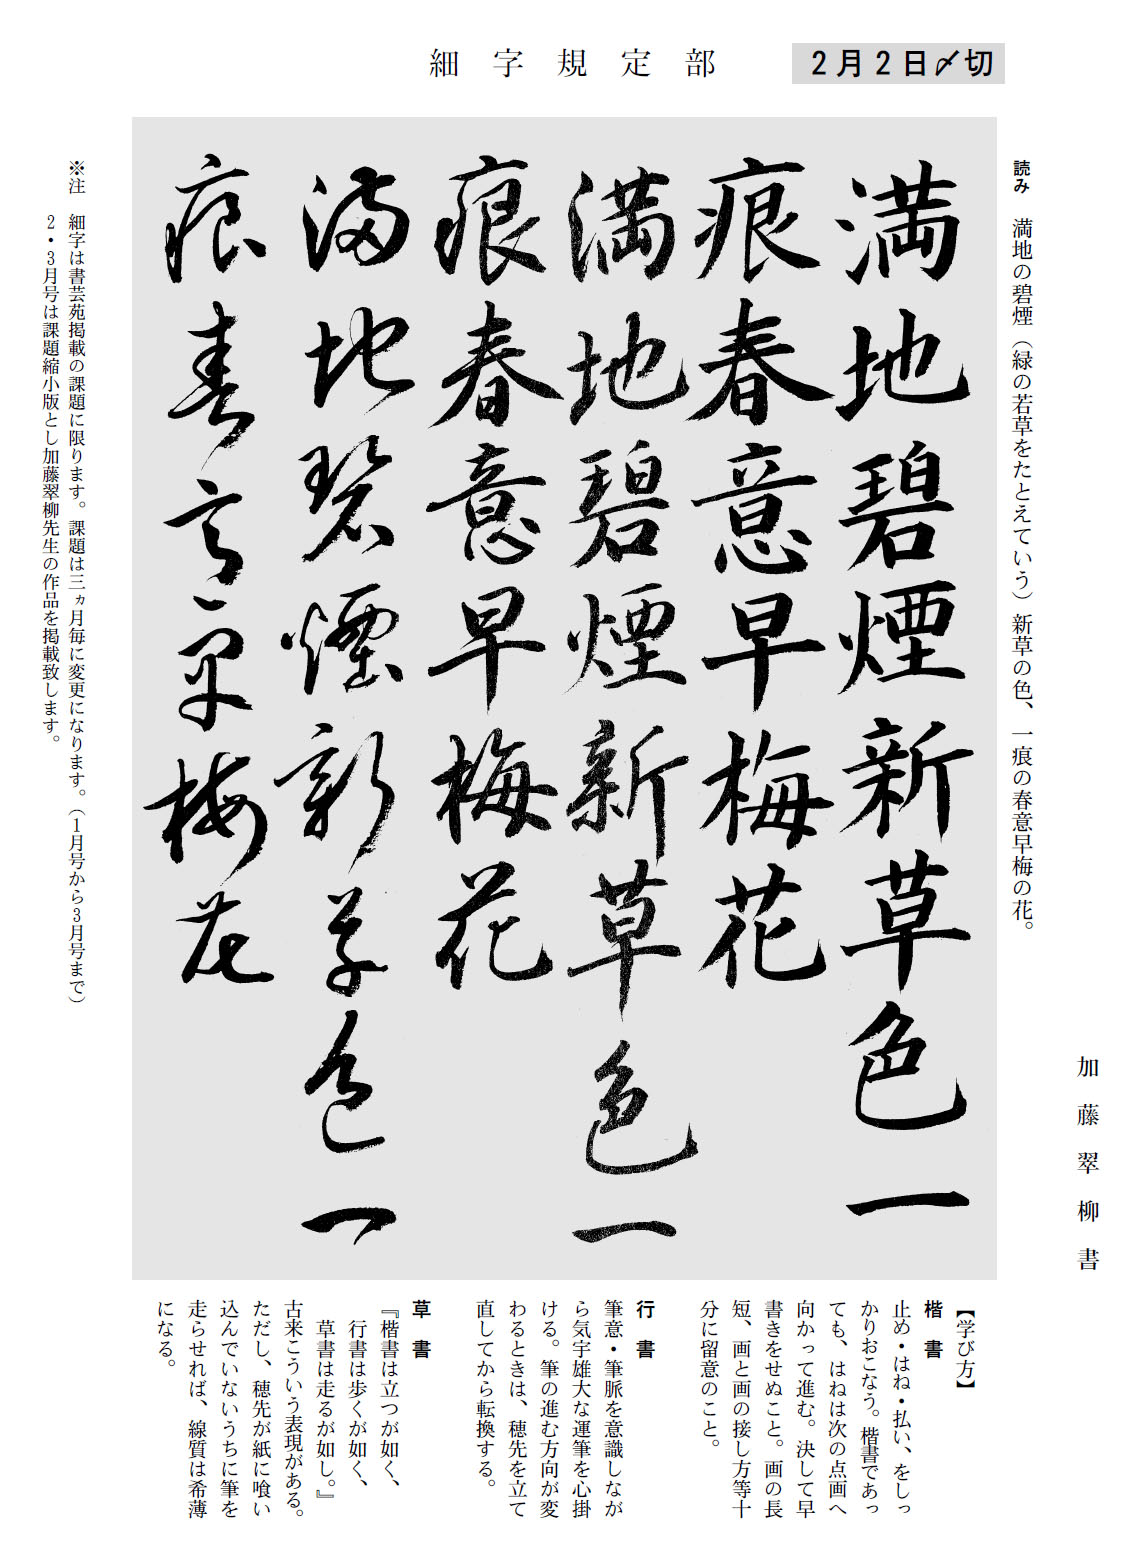 細字規定部
2月2日〆切
加藤翠柳書
読み　満地の碧煙（緑の若草をたとえていう）新草の色、一痕の春意早梅の花。
満地碧煙新草色一
痕春意早梅花
満地碧煙新草色一
痕春意早梅花
満地碧煙新草色一
痕春意早梅花
※注　細字は書芸苑掲載の課題に限ります。課題は三ヵ月毎に変更になります。（1月号から3月号まで）
2・3月号は課題縮小版とし加藤翠柳先生の作品を掲載致します。
【学び方】
楷　書
止め・はね・払い、をしっ
かりおこなう。楷書であっ
ても、はねは次の点画へ
向かって進む。決して早
書きをせぬこと。画の長
短、画と画の接し方等十
分に留意のこと。
行　書
筆意・筆脈を意識しなが
ら気宇雄大な運筆を心掛
ける。筆の進む方向が変
わるときは、穂先を立て
直してから転換する。
草　書
『楷書は立つが如く、
行書は歩くが如く、
草書は走るが如し。』
古来こういう表現がある。
ただし、穂先が紙に喰い
込んでいないうちに筆を
走らせれば、線質は希薄
になる。